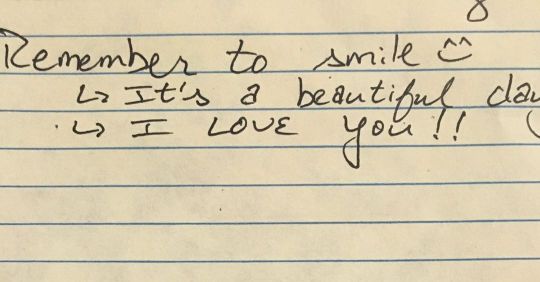 Remember to smile
↳ It's a beautiful day
↳ I LOVE you!!